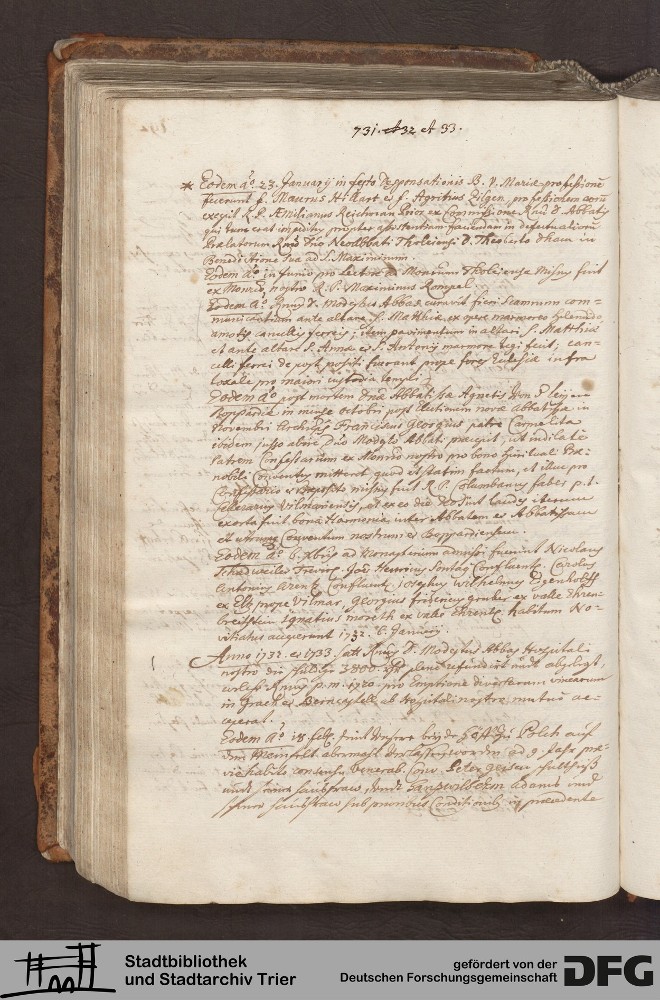 731. et 32 et 33.
* Eodem aō. 23. Januarij in festo Desponsationis B. V. Mariæ professionē
fecerunt f. Maurus Hillart et f. Agritius Zilgen, professionem
excepit R. P. Æmilianus Reichman Prior ex commissione Rmi D. Abbatis
qui tunc erat impeditus propter assistentiam
Prælatorum Rmo Dno Neoabbati Tholeiensi D. Theoberto d'ham in
Benedictione sua ad S. Maximinum.
Eodem aō. in Junio pro Lectore ad Monrium Tholeiense missus fuit
ex Monrio nostro R. P. Maximinus Rompel.
Eodem aō. Rmus D. Modestus Abbas curavit fieri scamnum com=
municantium ante altare S. Matthiæ ex opere marmoreo splendido
amotis cancellis ferreis; item pavimentum in altari S. Matthiæ
et ante altar S. Annæ et S. Antonij marmore tegi fecit; can=
celli ferrei de post positi fuerunt prope fores Ecclesiæ infra
pro maiori custodia templi.
Eodem aō post mortem Dnæ Abbatissæ Agnetis
Boppardiæ in mense octobri post Electionem novæ Abbatissæ in
Novembri Archieps Franciscus Georgius patre Carmelita
ibidem jusso abire Dno Modesto Abbati præcepit, ut indilate
Patrem Confessarium ex Monrio nostro pro bono spirituali Præ=
nobilis Conventus mitteret, quod et statim factum, et illuc pro
Confessario et Præposito missus fuit R. P. Columbanus faber p. t.
Cellerarius Vilmariensis, et ex eo die Deo sint laudes iterum
exorta fuit bona Harmonia inter Abbatem et Abbatissam
et utrumque Conventum nostrum et Boppardiensem.
Eodem aō 6. Xbris ad Monasterium admissi fuerunt Nicolaus
Schadweiler Trevir. Joēs Henricus Sontag Confluent. Carolus
Antonius Arentz Confluent. Josephus Wilhelmus Eigenholtz
ex Elz prope Vilmar, Georgius fridericus gruber ex valle Ehren=
breitstein Ignatius moreth ex valle Ehrent. habitum No=
vitiatus acceperunt 1732. 6. Januarij.
Anno 1732. et 1733. hatt Rmus D. Modestus Abbas Hospitali
nostro die schuldige 3800. plene refundirt undt abgelegt,
welche Rmus p. m. 1720 pro Emptione diversarum vinearum
in Graach et Berncastell ab Hospitali nostro mutuo ac=
ceperat.
Eodem Aō 18. feb. seint unsere beyde Höff zu Polch auf
dem Meinfelt abermahl verlassen worden ad 9 Jahr præ=
viè habito consensu Venerab. Conv. Peter geisen schultheiß
undt seiner haußfraw, undt Hanß wilhelm Adams undt
seiner haußfraw sub prioribus Conditionibus in præcedente
Stadtbibliothek
und Stadtarchiv Trier
gefördert von der
Deutschen Forschungsgemeinschaft
DFG